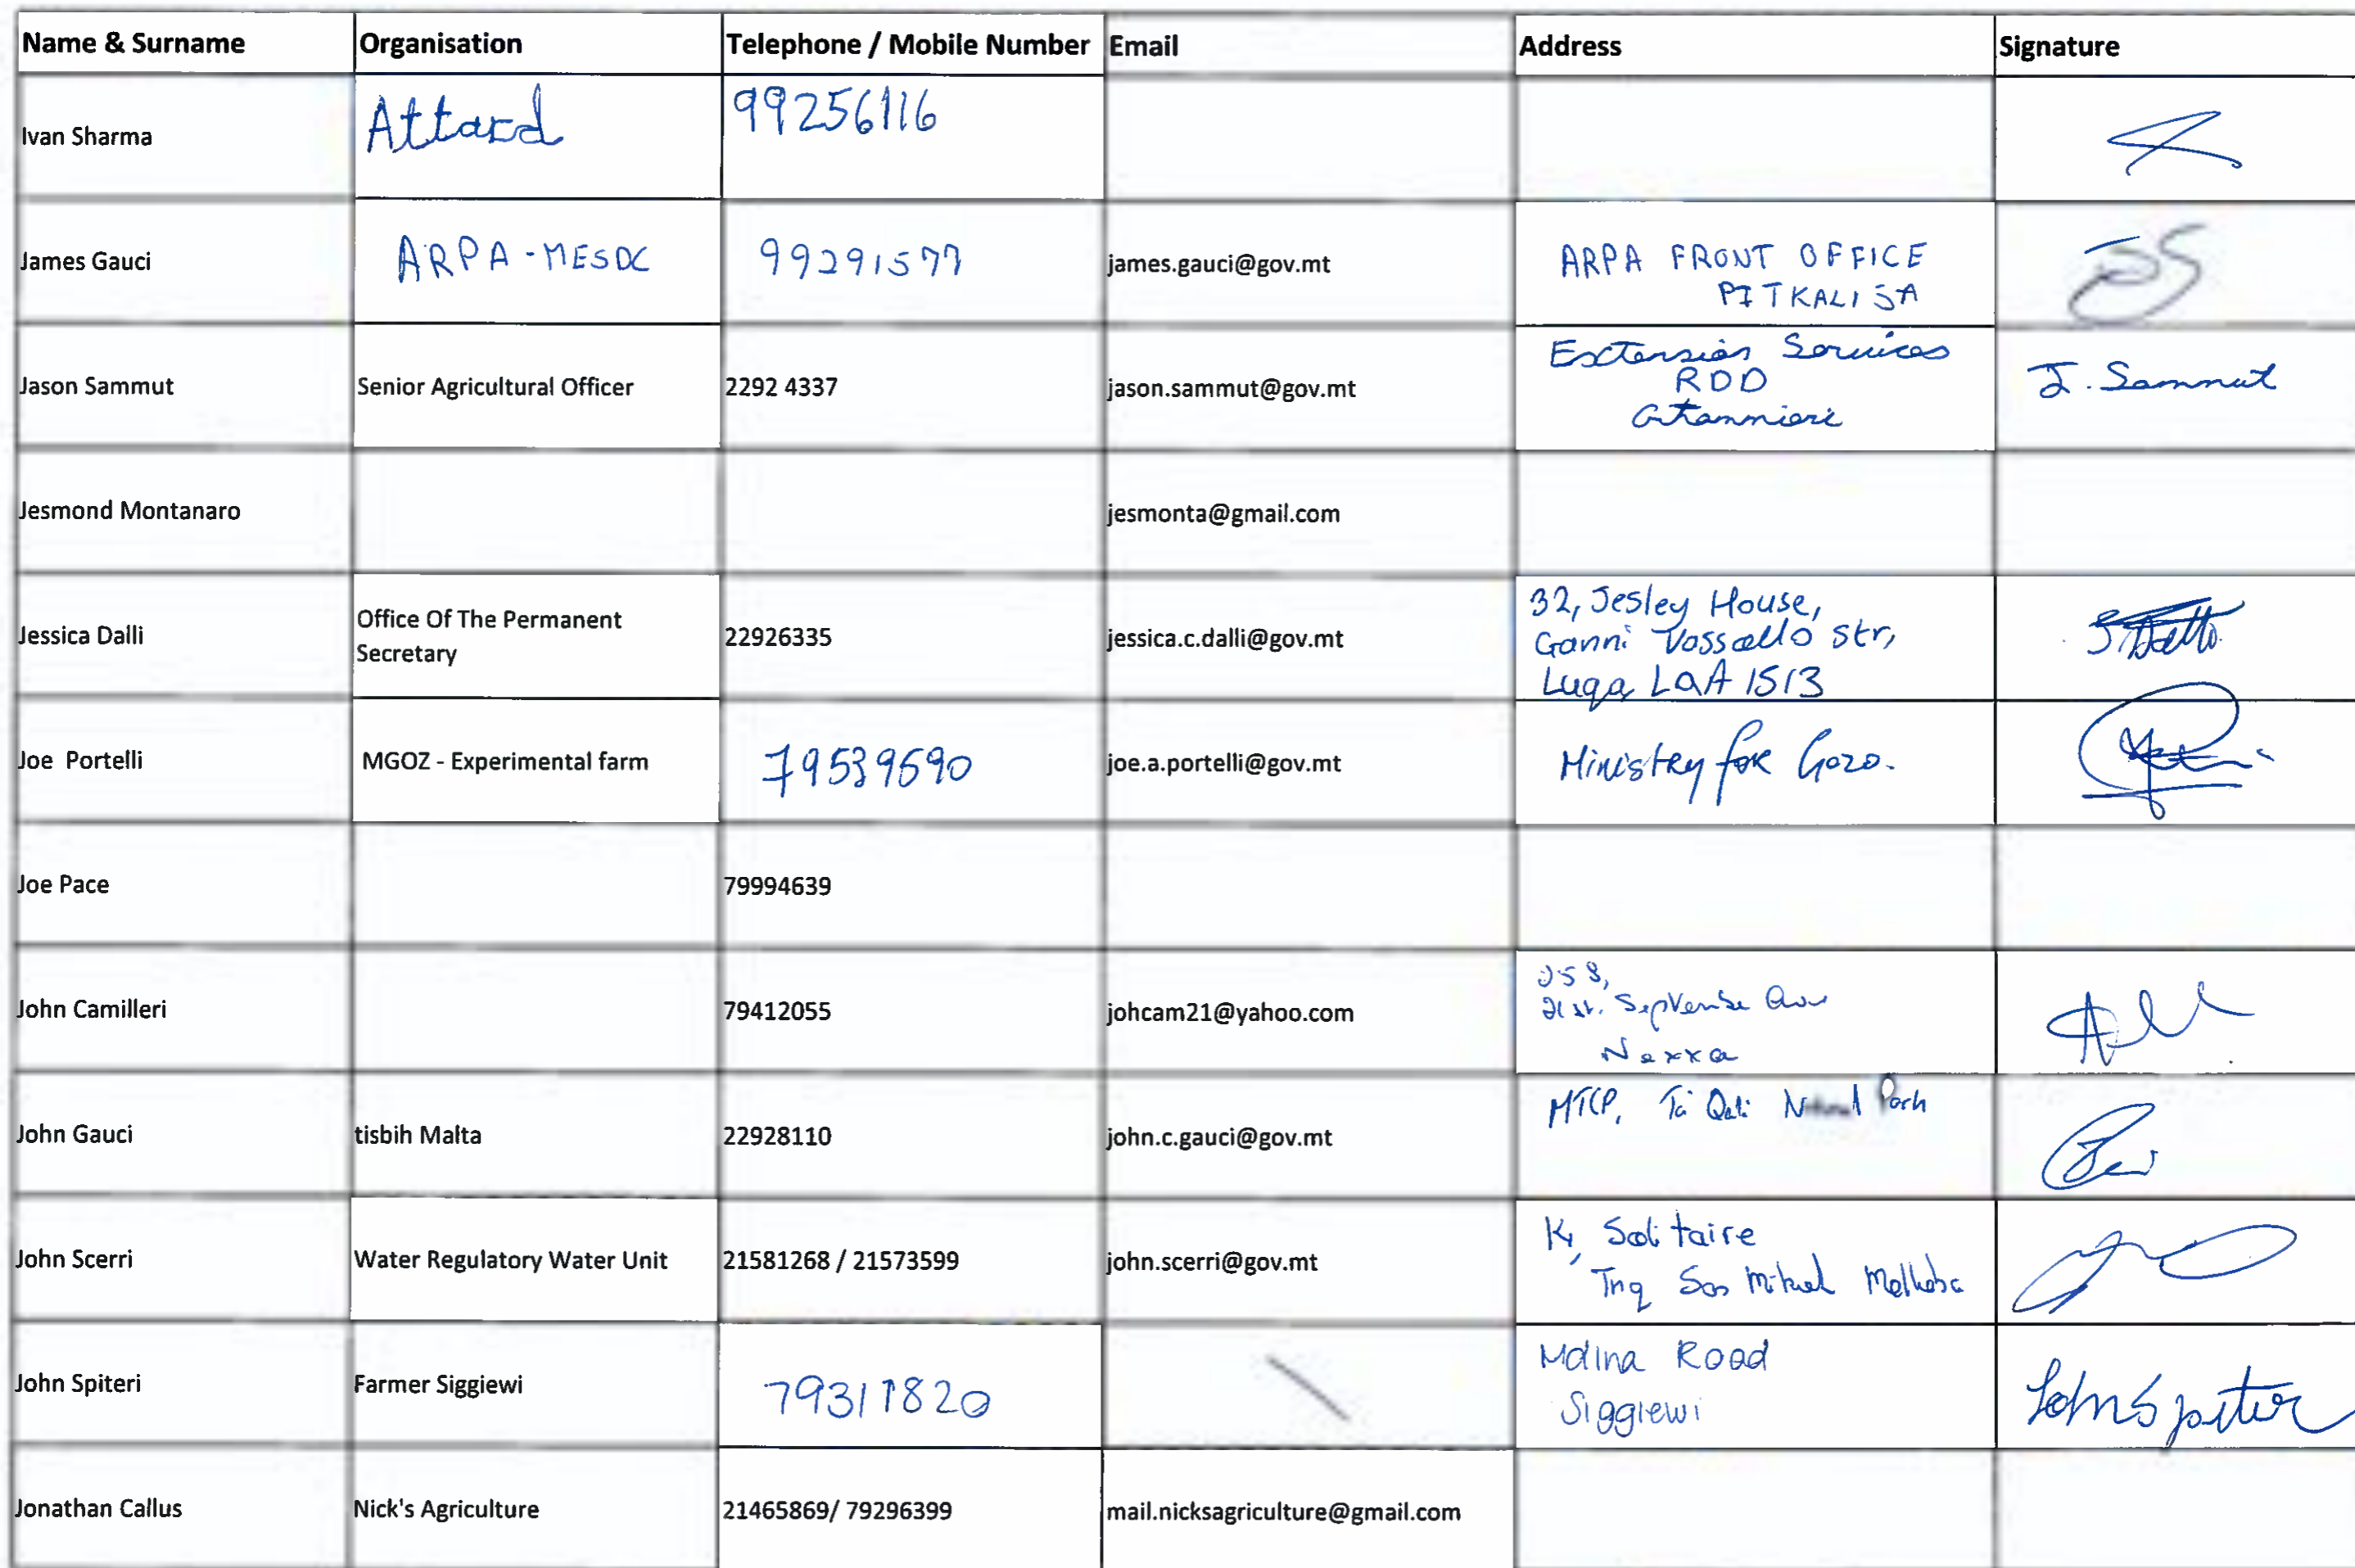 Name & Surname Organisation Telephone / Mobile Number Email Address Signature
Ivan Sharma Attard 99256116
James Gauci ARPA-MESDC 99291577 james.gauci@gov.mt ARPA FRONT OFFICE
PITKALIJA
Jason Sammut Senior Agricultural Officer 2292 4337 jason.sammut@gov.mt Extension Services J. Sammut
RDD
Jesmond Montanaro jesmonta@gmail.com
Jessica Dalli Office Of The Permanent
Secretary 22926335 jessica.c.dalli@gov.mt 32, Jesley House,
Ganni Vassallo str,
Luqa LQA 1513
Joe Portelli MGOZ - Experimental farm 79539690 joe.a.portelli@gov.mt Ministry for Gozo.
Joe Pace 79994639
John Camilleri 79412055 johcam21@yahoo.com 21st. September Ave
Naxxa
John Gauci tisbih Malta 22928110 john.c.gauci@gov.mt MTCP, Ta Qali National Park
John Scerri Water Regulatory Water Unit 21581268 / 21573599 john.scerri@gov.mt Solitaire
Triq San Mikiel
John Spiteri Farmer Siggiewi 79311820 Mdina Road John Spiteri
Siggiewi
Jonathan Callus Nick's Agriculture 21465869/ 79296399 mail.nicksagriculture@gmail.com